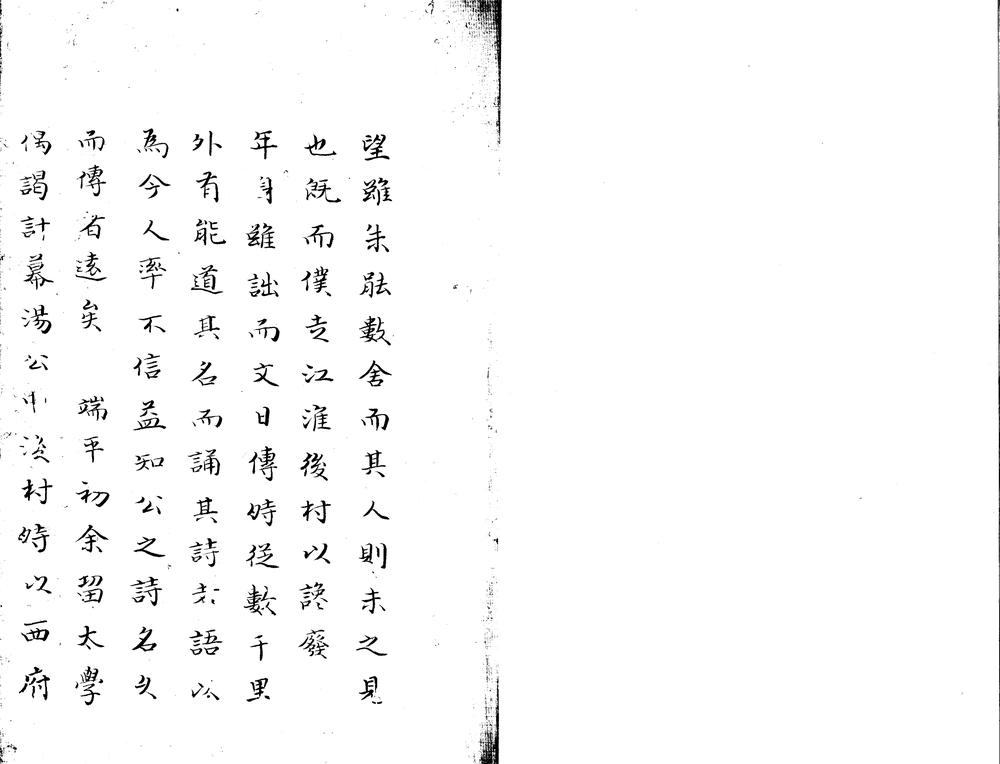 望雖朱䏻數舍而其人則未之見
也既而僕走江淮後村以讒廢
年身雖詘而文日傳時從數千里
外有能道其名而誦其詩者語以
為今人率不信益知公之詩名久
而傳者遠矣　端平初余畱太學
偶謁計幕湯公巾後村時以西府